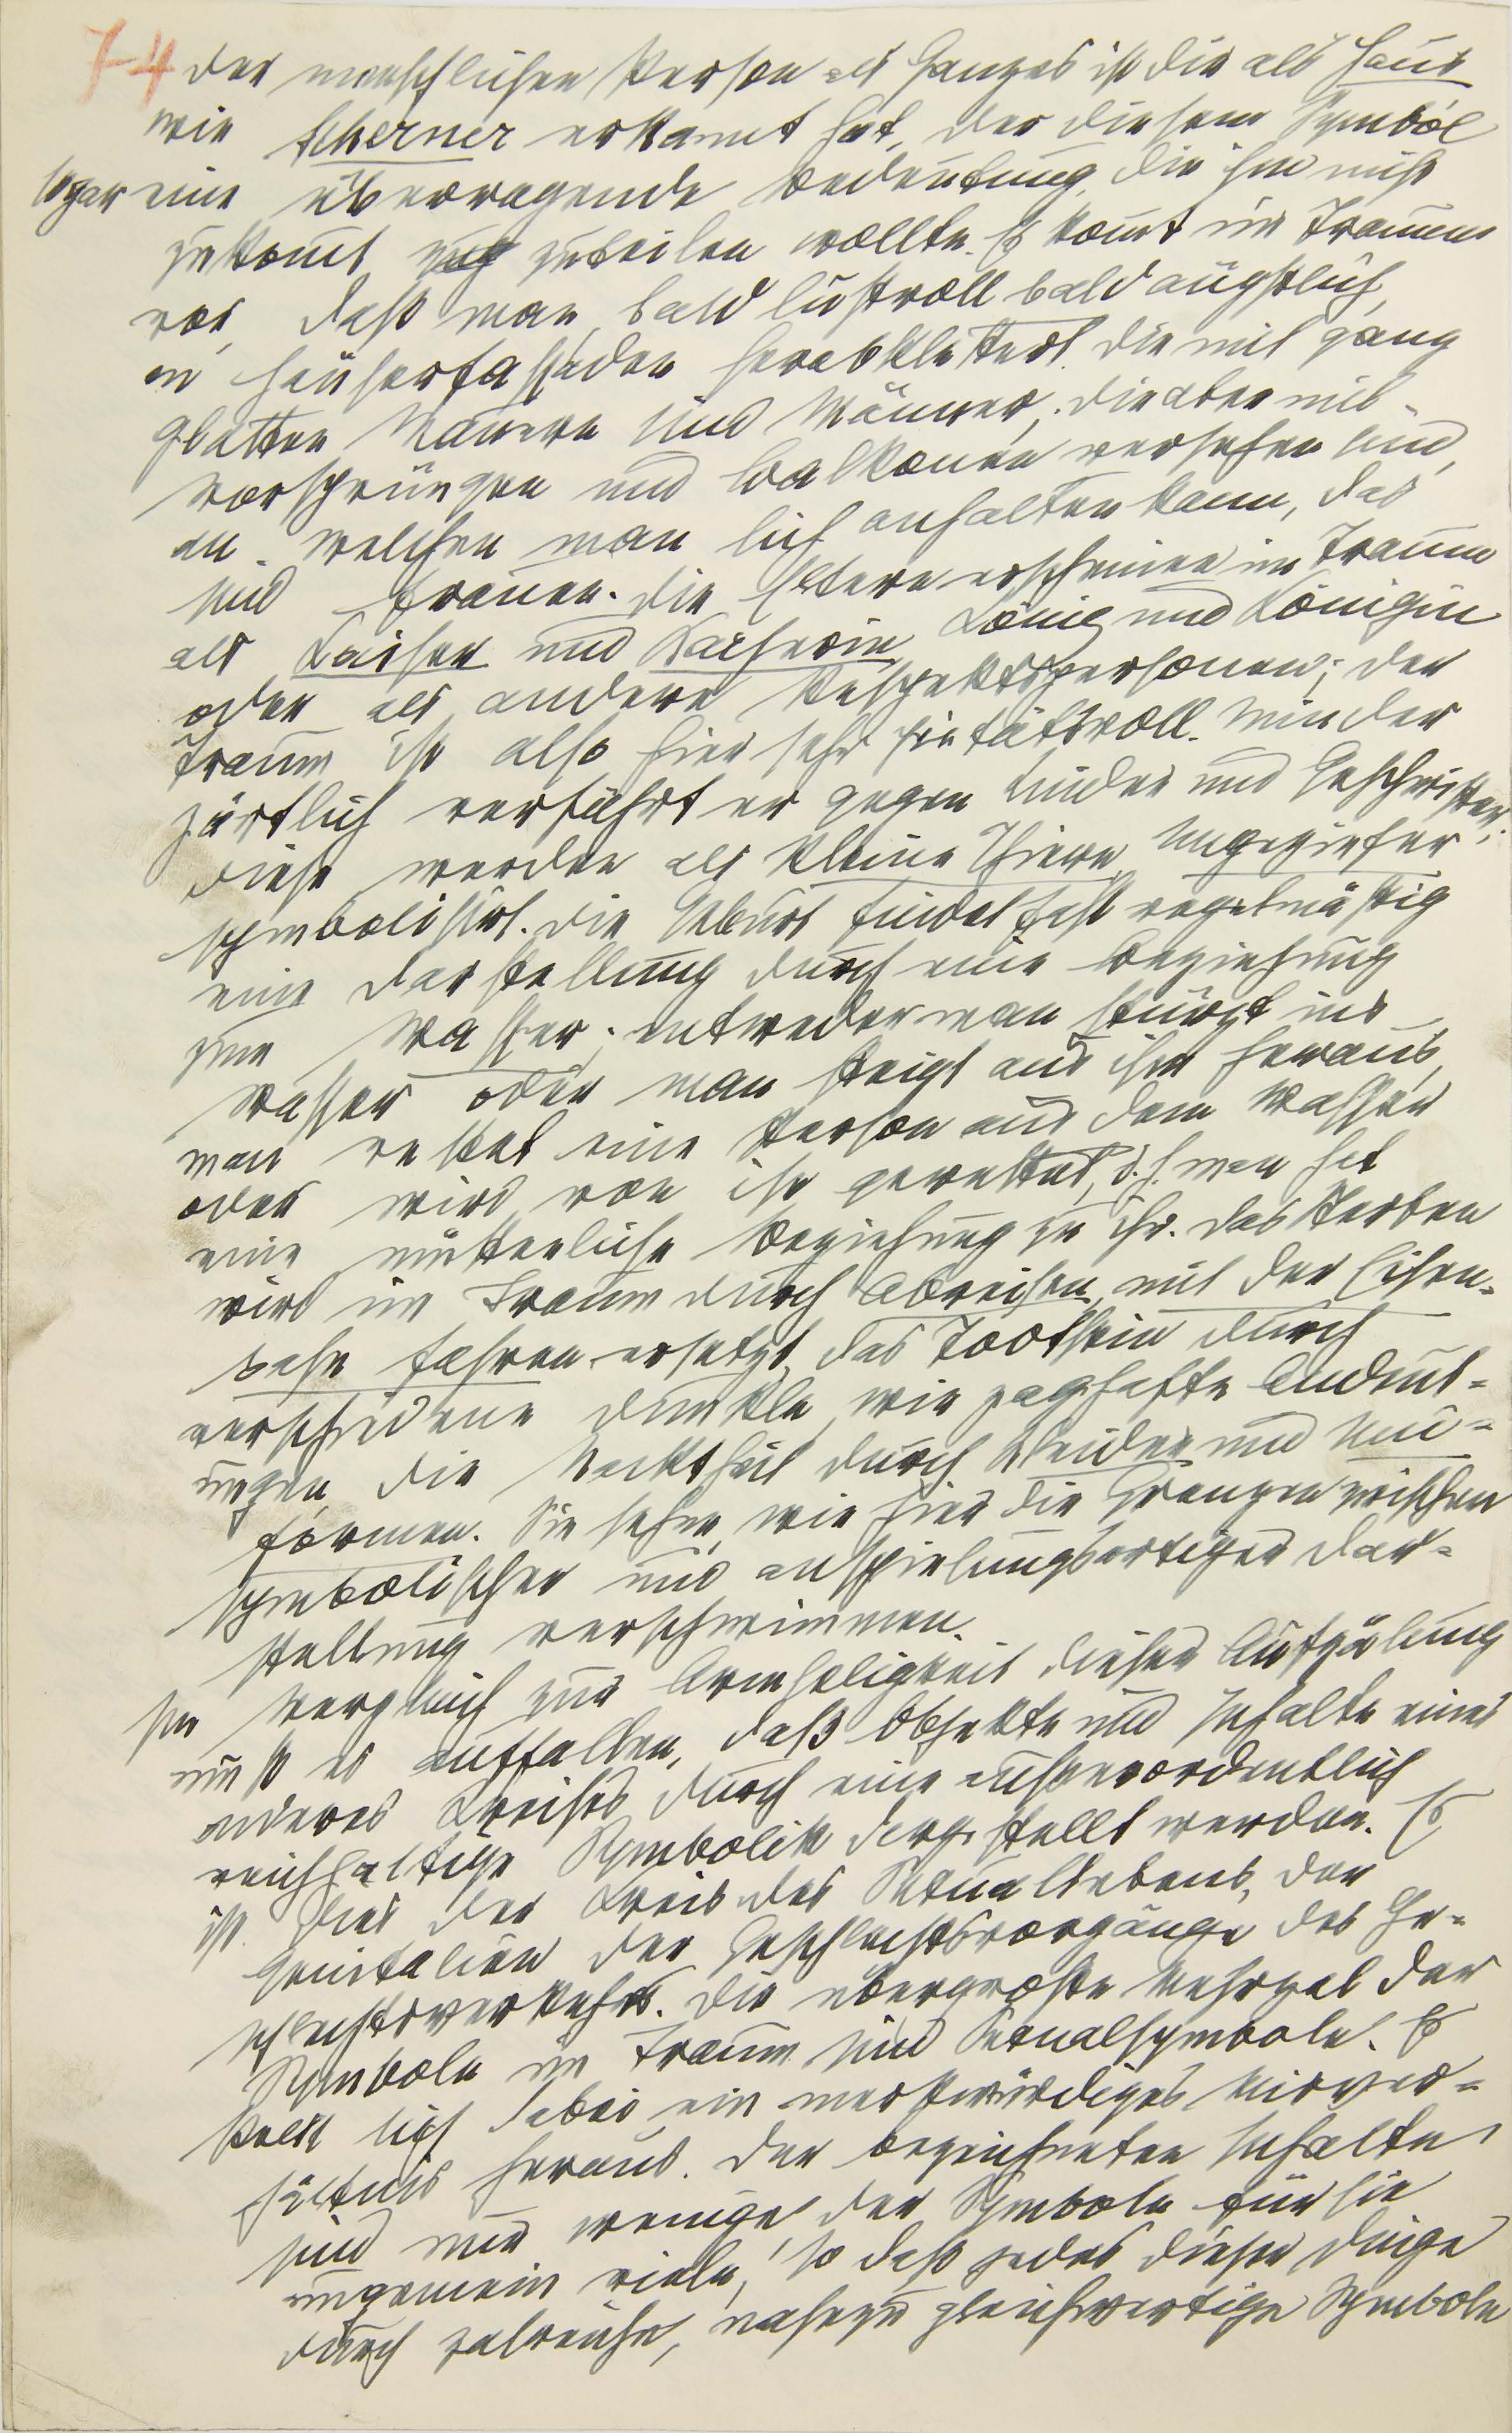 7–4 der menschlichen Person als Ganzes ist die als Haus
wie Scherner erkannt hat, der diesem Symbol
sogar eine überragende Bedeutung, die ihm nicht
zukomt, zuteilen wollte. Es komt im Traume
vor, daß man, bald lustvoll bald ängstlich,
an Häuserfassaden herabklettert. Die mit ganz
glatten Mauern sind Männer; die aber mit
Vorsprüngen und Balkonen versehen sind,
an welchen man sich anhalten kann, das
sind Frauen. Die Eltern erscheinen im Traum
als Kaiser und Kaiserin, König und Königin
oder als andere Respektspersonen; der
Traum ist also hier sehr pietätsvoll. Minder
zärtlich verfährt er gegen Kinder und Geschwister;
diese werden als kleine Thiere, Ungeziefer
symbolisirt. Die Geburt findet fast regelmäßig
eine Darstellung durch eine Beziehung
zum Wasser; entweder man stürzt ins
Wasser oder man steigt aus ihm heraus,
man rettet eine Person aus dem Wasser
oder wird von ihr gerettet, d.h. man hat
eine mütterliche Beziehung zu ihr. Das Sterben
wird im Traum durch Abreisen, mit der Eisen-
bahn fahren ersetzt, das Todtsein durch
verschiedene dunkle, wie zaghafte Andeut-
ungen, die Nacktheit durch Kleider und Uni-
formen. Sie sehen, wie hier die Grenzen zwischen
symbolischer und anspielungsartiger Dar-
stellung verschwimmen.
Im Vergleich zur Armseligkeit dieser Aufzälung
muß es auffallen, daß Objekte und Inhalte eines
anderen Kreises durch eine außerordentlich
reichhaltige Symbolik dargestellt werden. Es
ist dies der Kreis des Sexuallebens, der
Genitalien der Geschlechtsvorgänge des Ge-
schlechtsverkehrs. Die übergroße Mehrzal der
Symbole im Traum sind Sexualsymbole. Es
stellt sich dabei ein merkwürdiges Misver-
hältnis heraus. Der bezeichneten Inhalte
sind nur wenige, der Symbole für sie
ungemein viele, so daß jedes dieser Dinge
durch zalreiche, nahezu gleichwertige Symbole